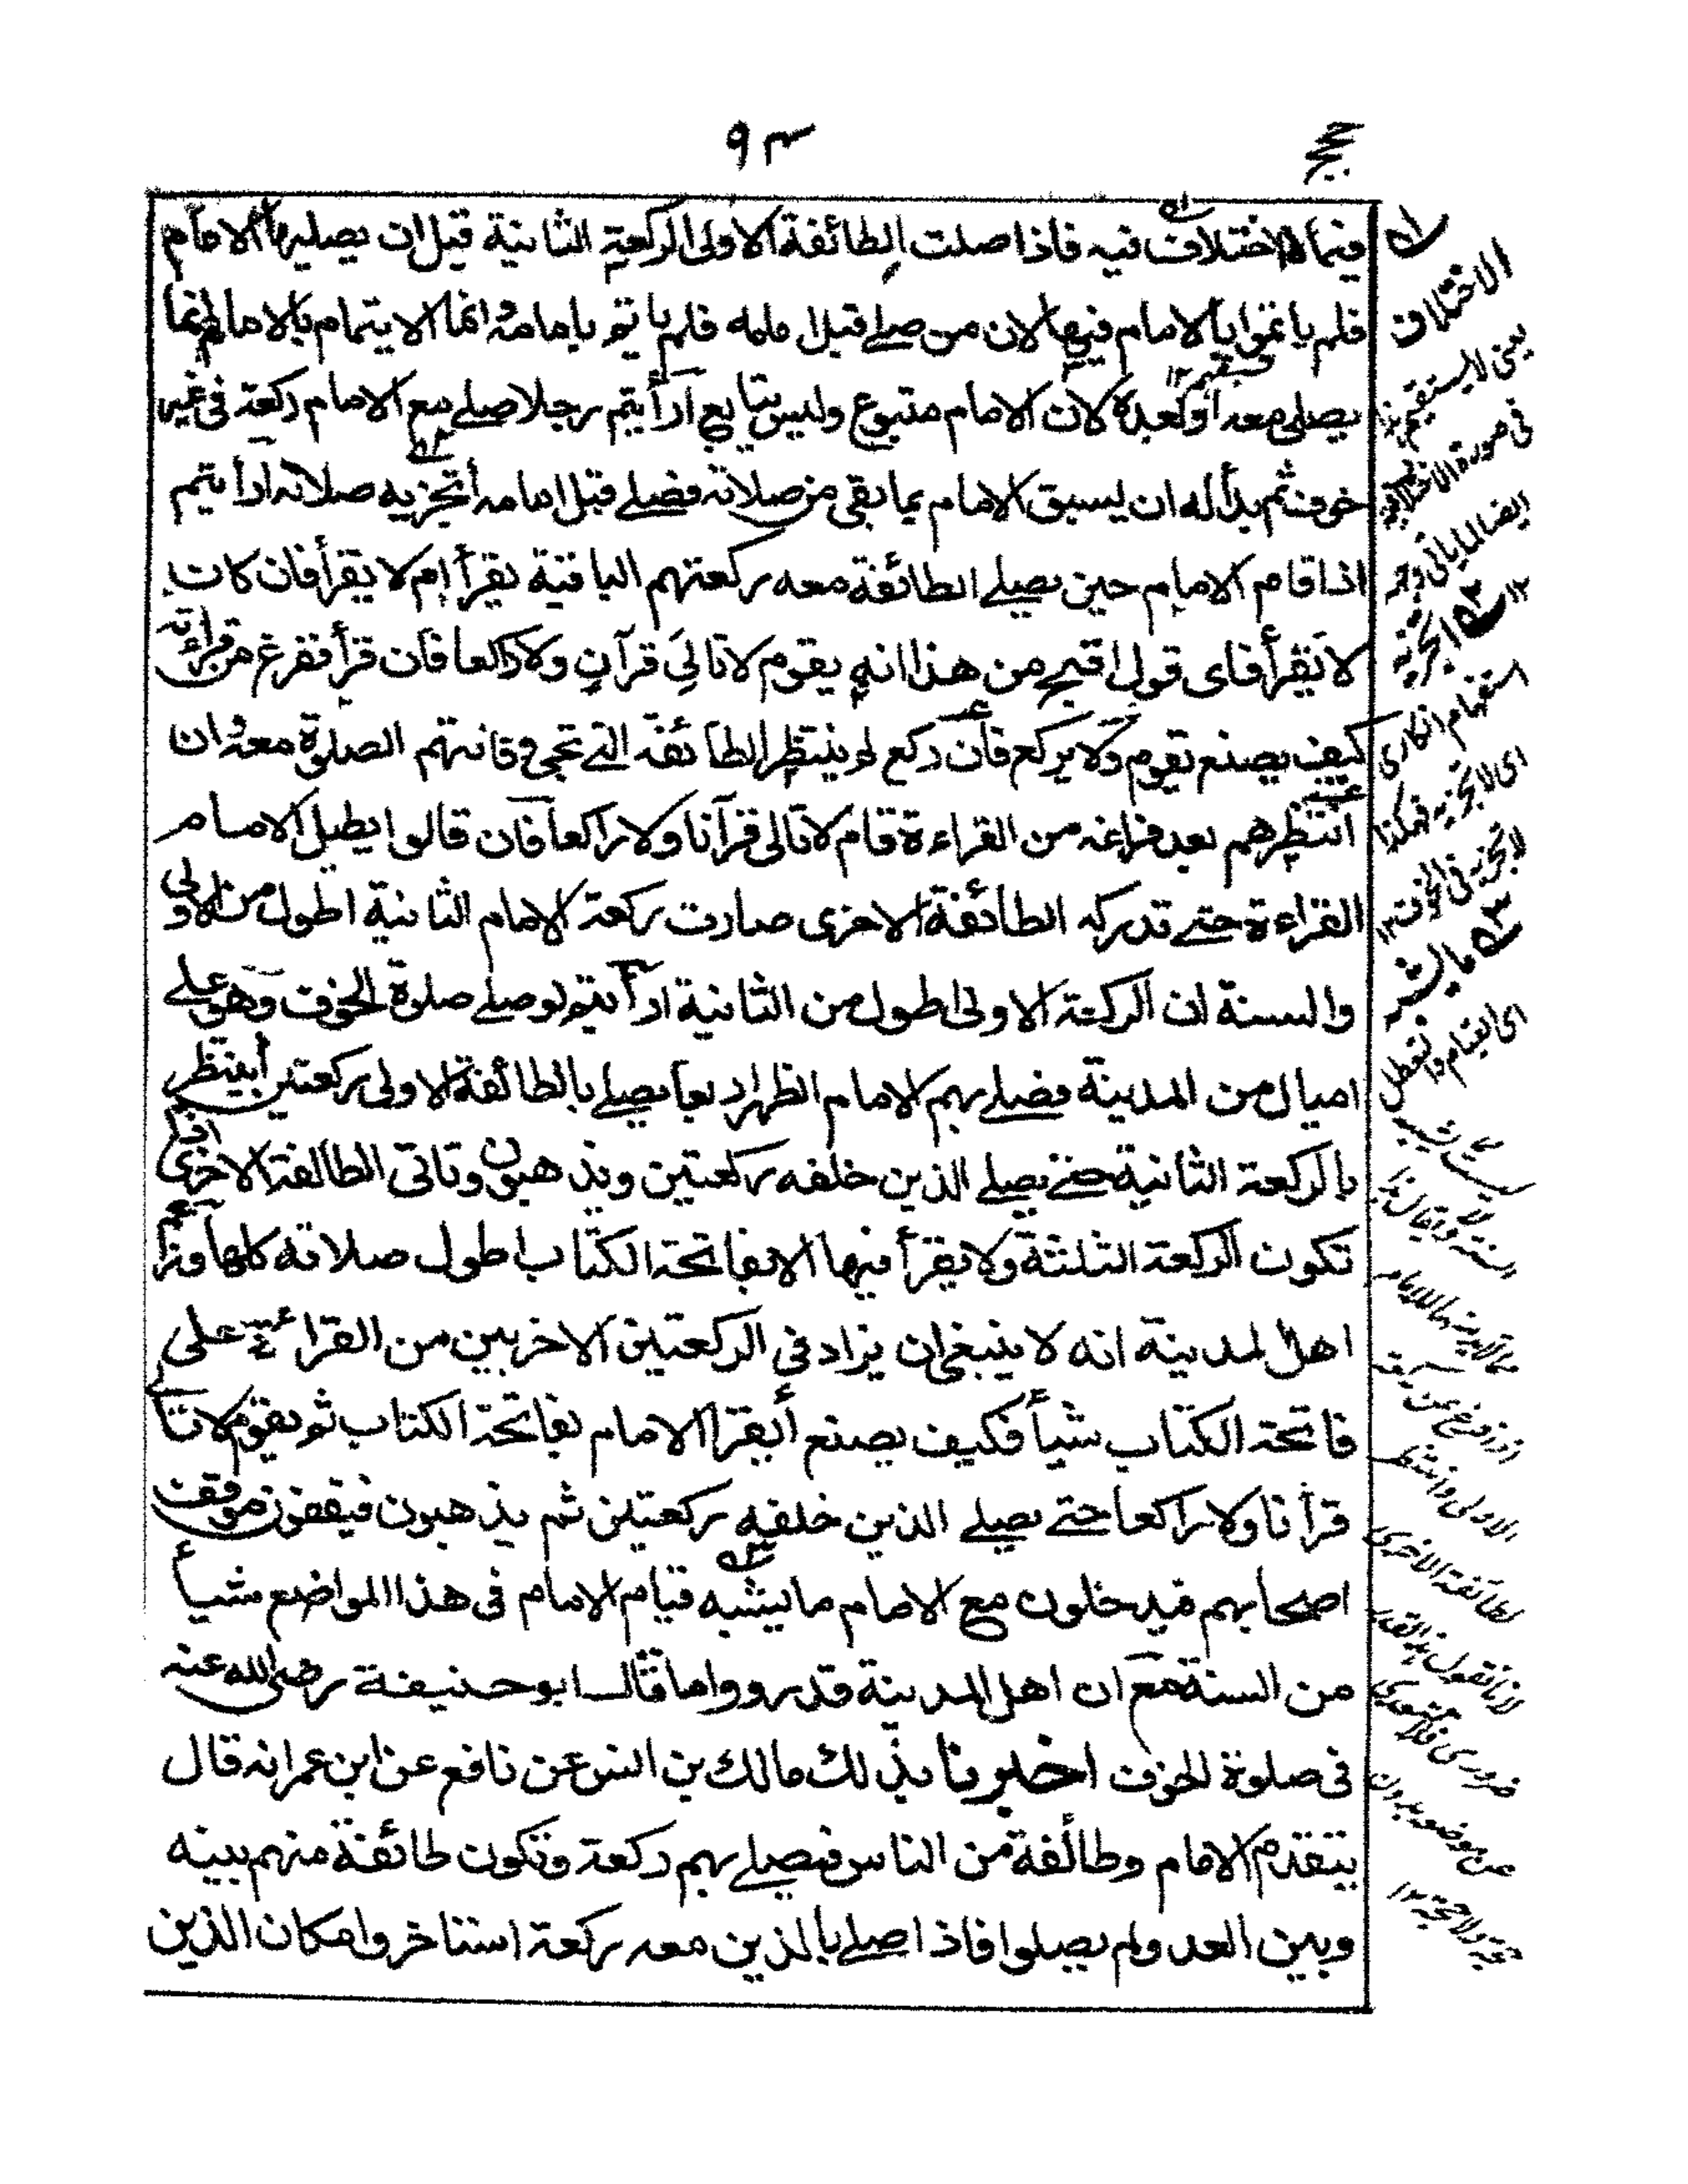 ٩٣
فيما لا اختلاف فيه فاذا صلت الطائفة الاولى الركعة الثانية قبل ان يصليها الامام
فلم ياتموا بالامام فيها لان من صلے قبل امامه فلم ياتم بامامه وانما الايتمام بالامام انما
يصلى معه او بعده لان الامام متبوع وليس بتابع ارأيتم رجلا صلے مع الامام ركعة فى غير
خوف ثم بدأ له ان يسبق الامام بما بقى من صلاته فصلے قبل امامه أتجزيه صلاته ارأيتم
اذا قام الامام حين يصلے الطائفة معه ركعتهم الباقية يقرأ ام لا يقرأ فان كان
لا يقرأ فاى قول اقبح من هذا انه يقوم لا تالى قرآن ولا راكعا فان قرأ ففرغ من قراءته
كيف يصنع يقوم ولا يركع فان ركع لم ينتظر الطائفة التے تجئ وفاتهم الصلوة معه وان
انتظرهم بعد فراغه من القراءة قام لا تالى قرآنا ولا راكعا فان قالوا يطيل الامام
القراءة حتے تدركه الطائفة الاخرى صارت ركعة الامام الثانية اطول من الاولى
والسنة ان الركعة الاولى اطول من الثانية ارأيتم لو صلے صلوة الخوف وهو علے
اميال من المدينة فصلے بهم الامام الظهر اربعا يصلے بالطائفة الاولى ركعتين أينتظر
بالركعة الثانية حتے يصلے الذين خلفه ركعتين ويذهبون وتاتى الطائفة الاخرى اذا
تكون الركعة الثلثة ولا يقرأ فيها الا بفاتحة الكتاب اطول صلاته كلها وزعم
اهل المدينة انه لا ينبغى ان يزاد فى الركعتين الاخريين من القراءة على
فاتحة الكتاب شيأ فكيف يصنع أيقرأ الامام بفاتحة الكتاب ثم يقوم لا تالى
قرأنا ولا راكعا حتے يصلے الذين خلفه ركعتين ثم يذهبون فيقفون موقف
اصحابهم فيدخلون مع الامام ما يشبه قيام الامام فى هذا المواضع شيأ
من السنة مع ان اهل المدينة قد رووا ما قال ابو حنيفة رضى الله عنه
فى صلوة الخوف اخبرنا بذلك مالك بن انس عن نافع عن ابن عمر انه قال
يتقدم الامام وطائفة من الناس فيصلے بهم ركعة وتكون طائفة منهم بينه
وبين العدو لم يصلوا فاذا صلے بالذين معه ركعة استاخروا مكان الذين
الاختلاف
يعنى لا يستقيم
فى صورة الاختلاف
ايضا
اتجزيه
استفهام انكارى
اى لا تجزيه فهكذا
لا تجزيه فى الخوف ١٢
ما يشبه